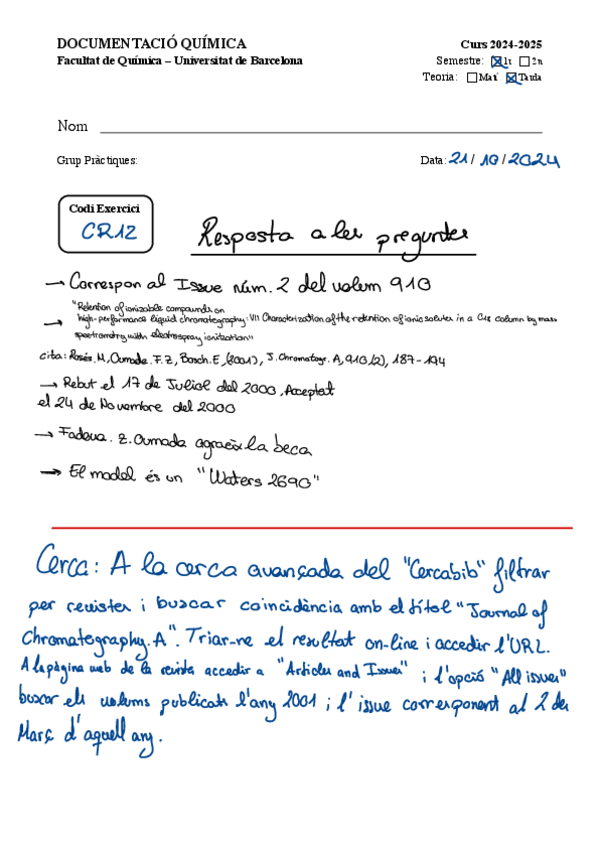 DOCUMENTACIÓ QUÍMICA
Curs 2024-2025
Facultat de Química – Universitat de Barcelona
Semestre: ☒1r ☐2n
Teoria: ☐Matí ☒Tarda
Nom
Grup Pràctiques:
Data: 21 / 10 / 2024
Codi Exercici
CR12
Resposta a les preguntes
→ Correspon al Issue núm. 2 del volum 910
"Retention of ionizable compounds on
→ high-performance liquid chromatography: VII Characterization of the retention of ionic solutes in a C18 column by mass
spectrometry with electrospray ionization"
cita: Rosés. M, Oumada. F. Z, Bosch. E, (2001), J. Chromatogr. A, 910 (2), 187-194
→ Rebut el 17 de Juliol del 2000, Acceptat
el 24 de Novembre del 2000
→ Fadoua. Z. Oumada agraeix la beca
→ El model és un "Waters 2690"
Cerca: A la cerca avançada del "Cercabib" filtrar
per revistes i buscar coincidència amb el títol "Journal of
Chromatography. A". Triar-ne el resultat on-line i accedir l'URL.
A la pàgina web de la revista accedir a "Articles and Issues" i l'opció "All issues"
buscar els volums publicats l'any 2001 i l'issue corresponent al 2 de
Març d'aquell any.